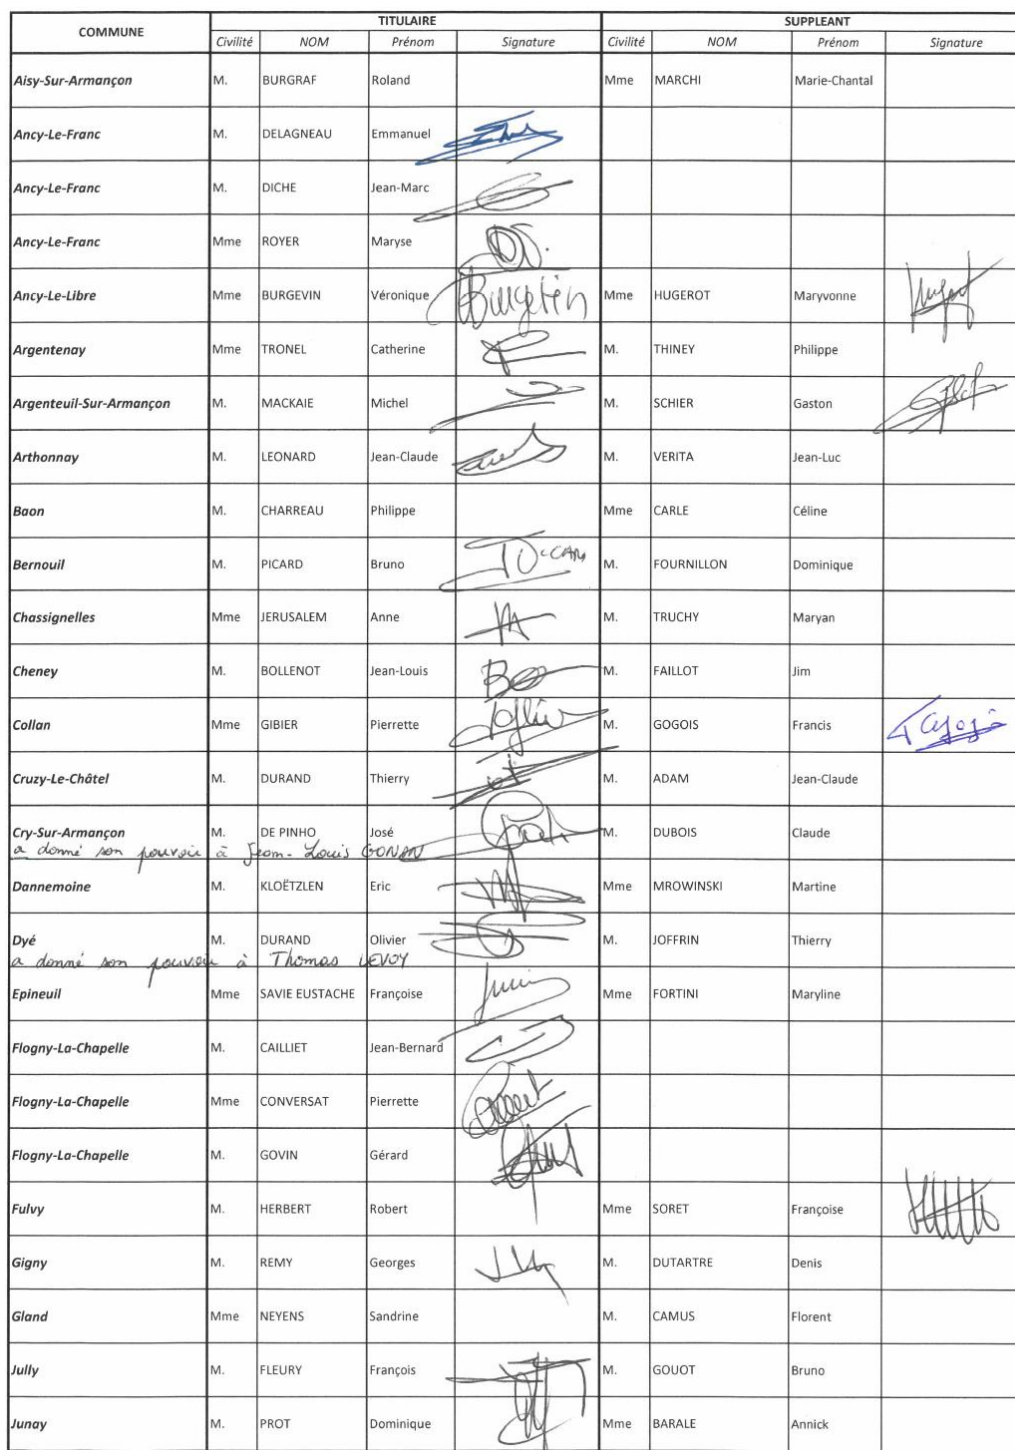 COMMUNE TITULAIRE SUPPLEANT
Civilité NOM Prénom Signature Civilité NOM Prénom Signature
Aisy-Sur-Armançon M. BURGRAF Roland Mme MARCHI Marie-Chantal
Ancy-Le-Franc M. DELAGNEAU Emmanuel
Ancy-Le-Franc M. DICHE Jean-Marc
Ancy-Le-Franc Mme ROYER Maryse
Ancy-Le-Libre Mme BURGEVIN Véronique Burgevin Mme HUGEROT Maryvonne Hugerot
Argentenay Mme TRONEL Catherine M. THINEY Philippe
Argenteuil-Sur-Armançon M. MACKAIE Michel M. SCHIER Gaston
Arthonnay M. LEONARD Jean-Claude M. VERITA Jean-Luc
Baon M. CHARREAU Philippe Mme CARLE Céline
Bernouil M. PICARD Bruno M. FOURNILLON Dominique
Chassignelles Mme JERUSALEM Anne M. TRUCHY Maryan
Cheney M. BOLLENOT Jean-Louis M. FAILLOT Jim
Collan Mme GIBIER Pierrette M. GOGOIS Francis
Cruzy-Le-Châtel M. DURAND Thierry M. ADAM Jean-Claude
Cry-Sur-Armançon M. DE PINHO José M. DUBOIS Claude
a donné son pouvoir à Jean-Louis GONON
Dannemoine M. KLOËTZLEN Eric Mme MROWINSKI Martine
Dyé M. DURAND Olivier M. JOFFRIN Thierry
a donné son pouvoir à Thomas LEVOY
Epineuil Mme SAVIE EUSTACHE Françoise Mme FORTINI Maryline
Flogny-La-Chapelle M. CAILLIET Jean-Bernard
Flogny-La-Chapelle Mme CONVERSAT Pierrette
Flogny-La-Chapelle M. GOVIN Gérard
Fulvy M. HERBERT Robert Mme SORET Françoise
Gigny M. REMY Georges M. DUTARTRE Denis
Gland Mme NEYENS Sandrine M. CAMUS Florent
Jully M. FLEURY François M. GOUOT Bruno
Junay M. PROT Dominique Mme BARALE Annick